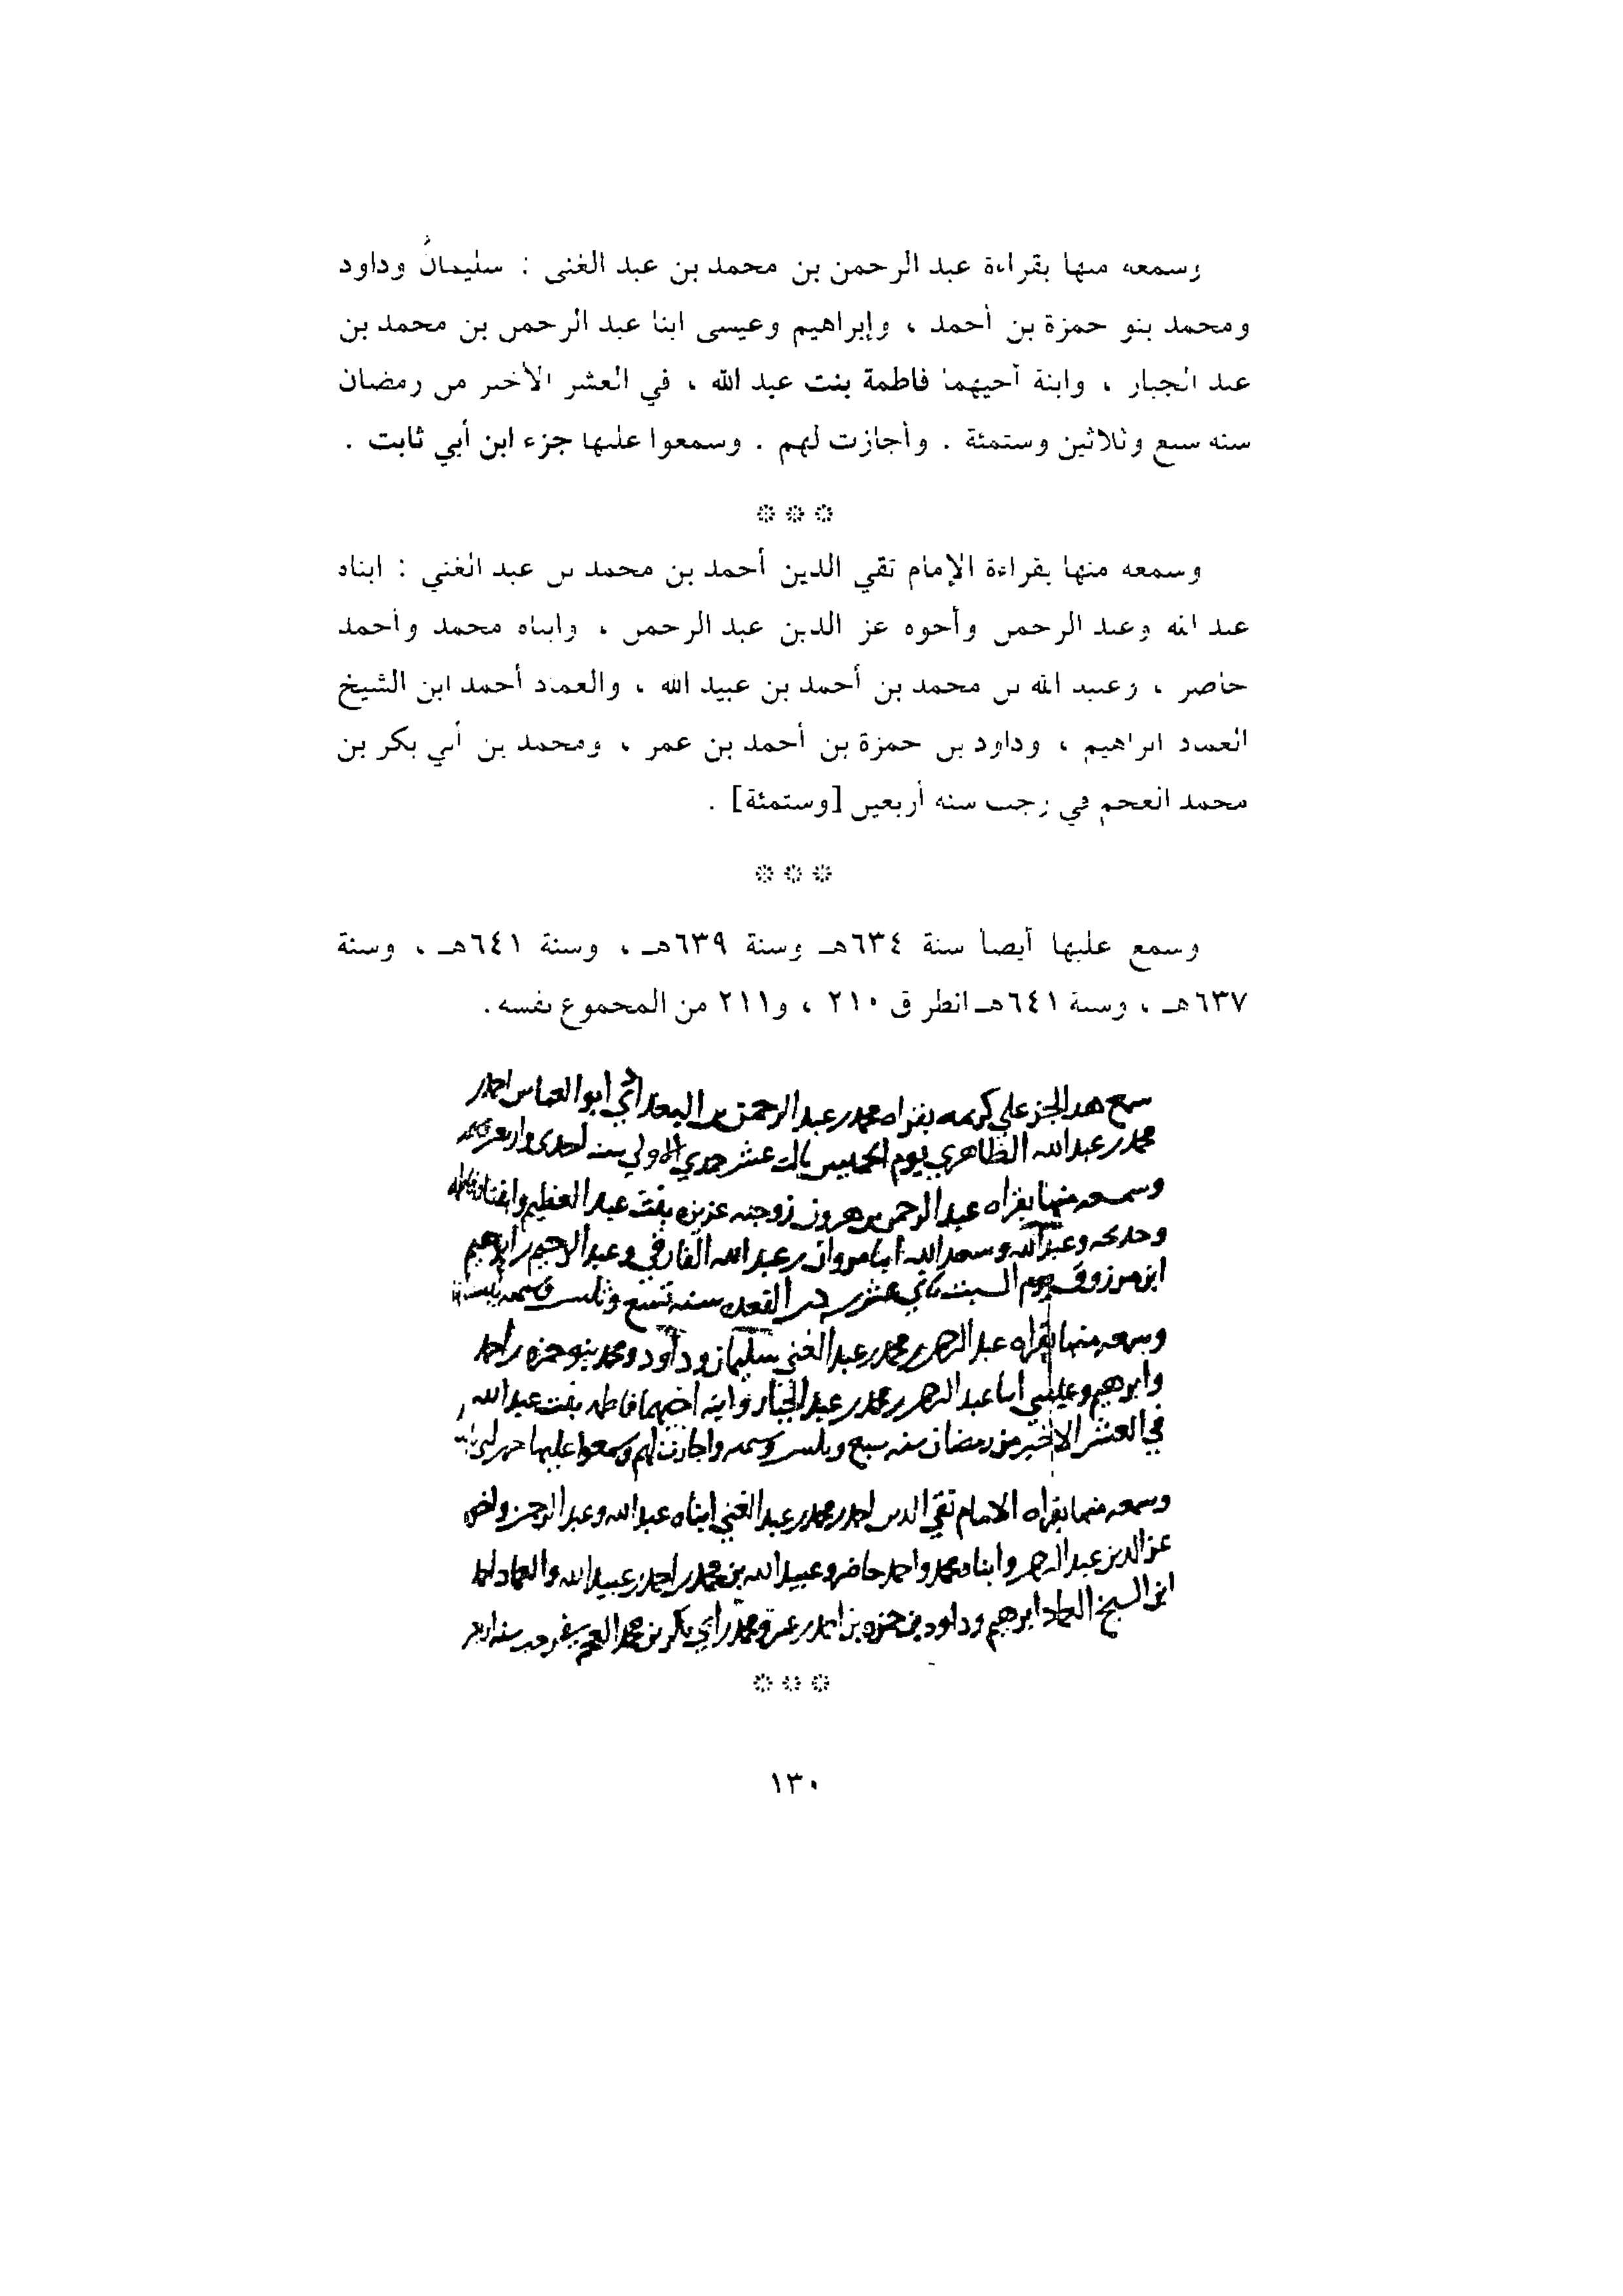 وسمعه منها بقراءة عبد الرحمن بن محمد بن عبد الغني : سليمانُ وداود
ومحمد بنو حمزة بن أحمد ، وإبراهيم وعيسى ابنا عبد الرحمن بن محمد بن
عبد الجبار ، وابنة أخيهما فاطمة بنت عبد الله ، في العشر الأخير من رمضان
سنة سبع وثلاثين وستمئة . وأجازت لهم . وسمعوا عليها جزء ابن أبي ثابت .
***
وسمعه منها بقراءة الإمام تقي الدين أحمد بن محمد بن عبد الغني : ابناه
عبد الله وعبد الرحمن وأخوه عز الدين عبد الرحمن ، وابناه محمد وأحمد
حاضر ، وعبيد الله بن محمد بن أحمد بن عبيد الله ، والعماد أحمد ابن الشيخ
العماد ابراهيم ، وداود بن حمزة بن أحمد بن عمر ، ومحمد بن أبي بكر بن
محمد العجم في رجب سنة أربعين [وستمئة] .
***
وسمع عليها أيضاً سنة ٦٣٤هـ وسنة ٦٣٩هـ ، وسنة ٦٤١هـ ، وسنة
٦٣٧هـ ، وسنة ٦٤١هـ انظر ق ٢١٠ ، و٢١١ من المجموع نفسه .
سمع هدا الجز علي كريمه بقراه محمد بن عبد الرحمن بن ابو العباس احمد
محمد بن عبد الله الظاهري يوم الخميس ثالث عشر جمدي الاولي سنه احدى واربعين
وسمعه منها بقراه عبد الرحمن بن هرون زوجته عزيزه بنت عبد العظيم وابنتاه فاطمه
وخديجه وعبد الله وسعد الله ابنا مروان بن عبد الله الفارقي وعبد الرحيم بن ابرهيم
ابن مرزوق يوم السبت ثاني عشر ذي القعده سنه تسع وثلثين
وسمعه منها بقراه عبد الرحمن بن محمد بن عبد الغني سليمان وداود ومحمد بنو حمزه بن احمد
وابرهيم وعيسى ابنا عبد الرحمن بن محمد بن عبد الجبار وابنه اخيهما فاطمه بنت عبد الله
في العشر الاخير من رمضان سنه سبع وثلثين وستمه واجازت لهم وسمعوا عليها
وسمعه منها بقراه الامام تقي الدين احمد بن محمد بن عبد الغني ابناه عبد الله وعبد الرحمن واخوه
عز الدين عبد الرحمن وابناه محمد واحمد حاضر وعبيد الله بن محمد بن احمد بن عبيد الله والعماد احمد
ابن الشيخ العماد ابرهيم وداود بن حمزه بن احمد بن عمر ومحمد بن ابي بكر بن محمد العجم في رجب سنه اربعين
***
١٣٠